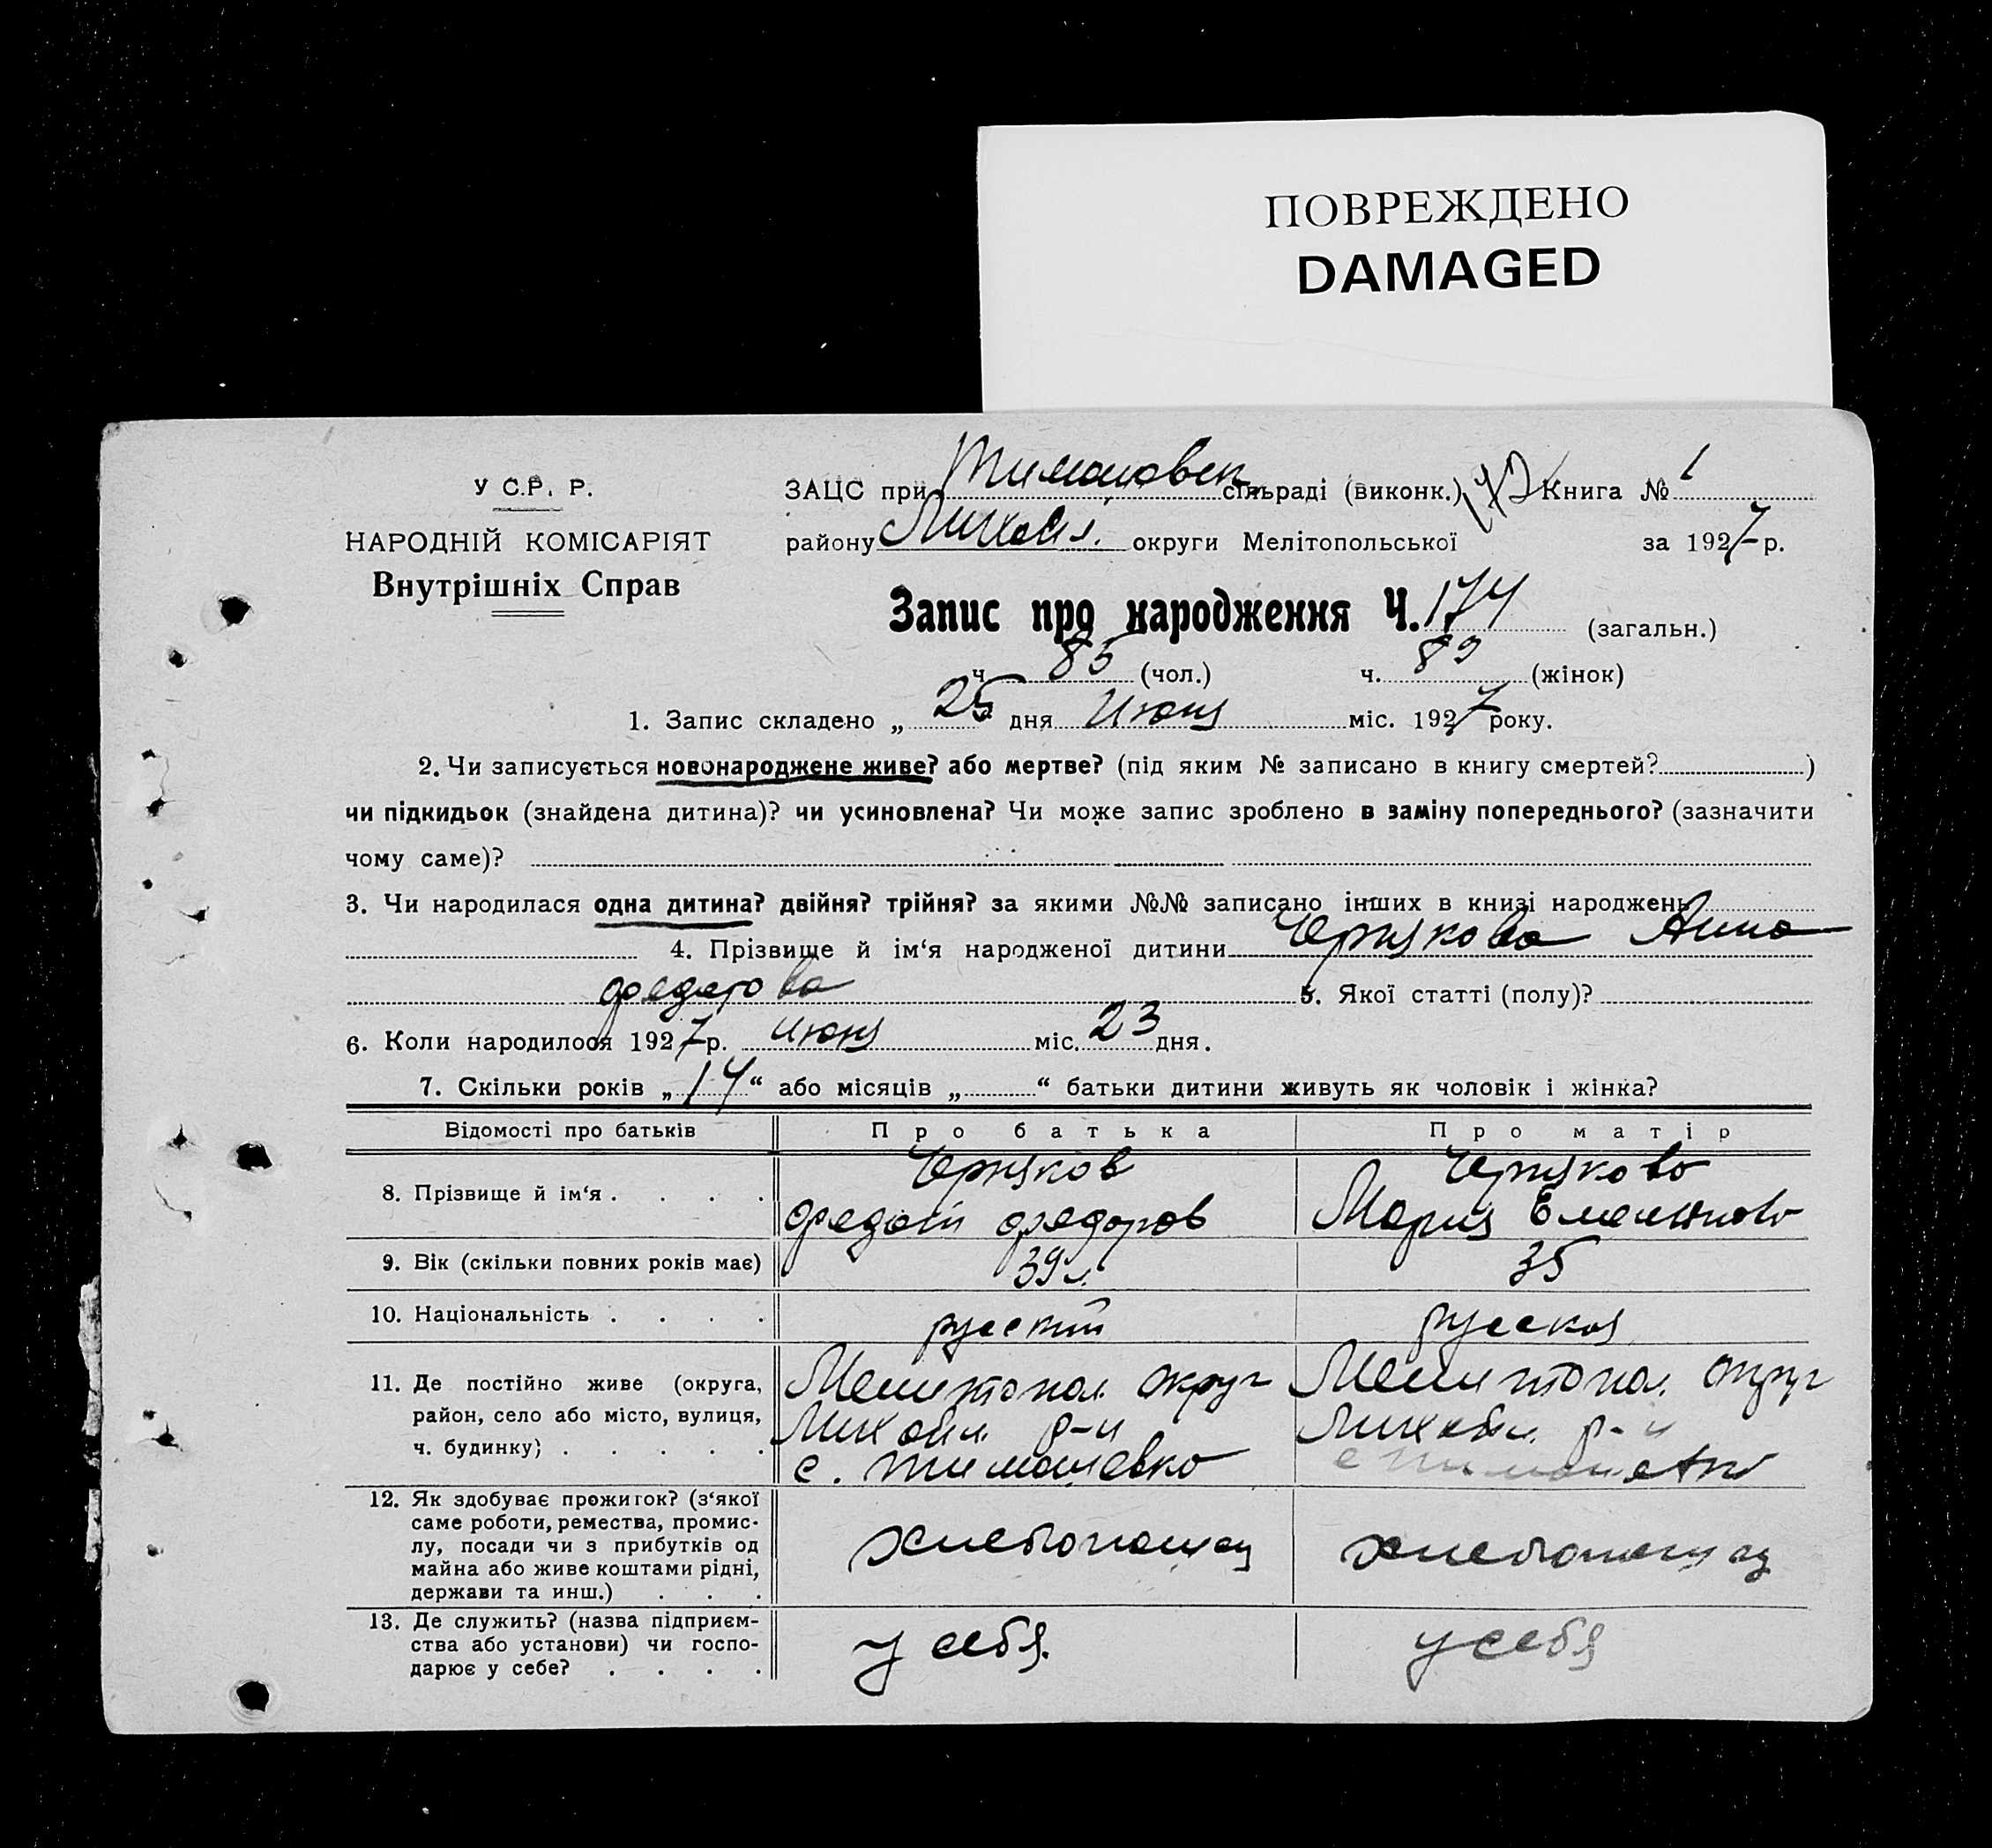 ПОВРЕЖДЕНО
DAMAGED
У С.Р. Р.
НАРОДНІЙ КОМІСАРІЯТ
Внутрішніх Справ
ЗАЦС при Тимошовск сільраді (виконк.) Книга № 1
району Михайл. округи Мелітопольської за 1927 р.
Запис про народження Ч. 174 (загальн.)
ч. 85 (чол.) ч. 89 (жінок)
1. Запис складено „ 25 дня Июня міс. 1927 року.
2. Чи записується новонароджене живе? або мертве? (під яким № записано в книгу смертей? )
чи підкидьок (знайдена дитина)? чи усиновлена? Чи може запис зроблено в заміну попереднього? (зазначити
чому саме)?
3. Чи народилася одна дитина? двійня? трійня? за якими №№ записано інших в книзі народжень
4. Прізвище й ім‘я народженої дитини Чернякова Анна
Федотова 5. Якої статті (полу)?
6. Коли народилося 1927 р. июня міс. 23 дня.
7. Скільки років „ 14 “ або місяців „ “ батьки дитини живуть як чоловік і жінка?
Відомості про батьків Про батька Про матір
8. Прізвище й ім‘я . . . . Черняков Чернякова
Федот Федоров Мария Емельянова
9. Вік (скільки повних років має) 39 л. 35
10. Національність . . . . русский русская
11. Де постійно живе (округа, Мелитопол. округ Мелитопол. округ
район, село або місто, вулиця, Михайл. р-н Михайл. р-н
ч. будинку) . . . . . с. Тимошевка с Тимошевка
12. Як здобуває прожиток? (з‘якої
саме роботи, ремества, промис-
лу, посади чи з прибутків од хлебопашец хлебопашец
майна або живе коштами рідні,
держави та инш.) . . .
13. Де служить? (назва підприєм-
ства або установи) чи госпо- у себя. у себя
дарює у себе? . . . .